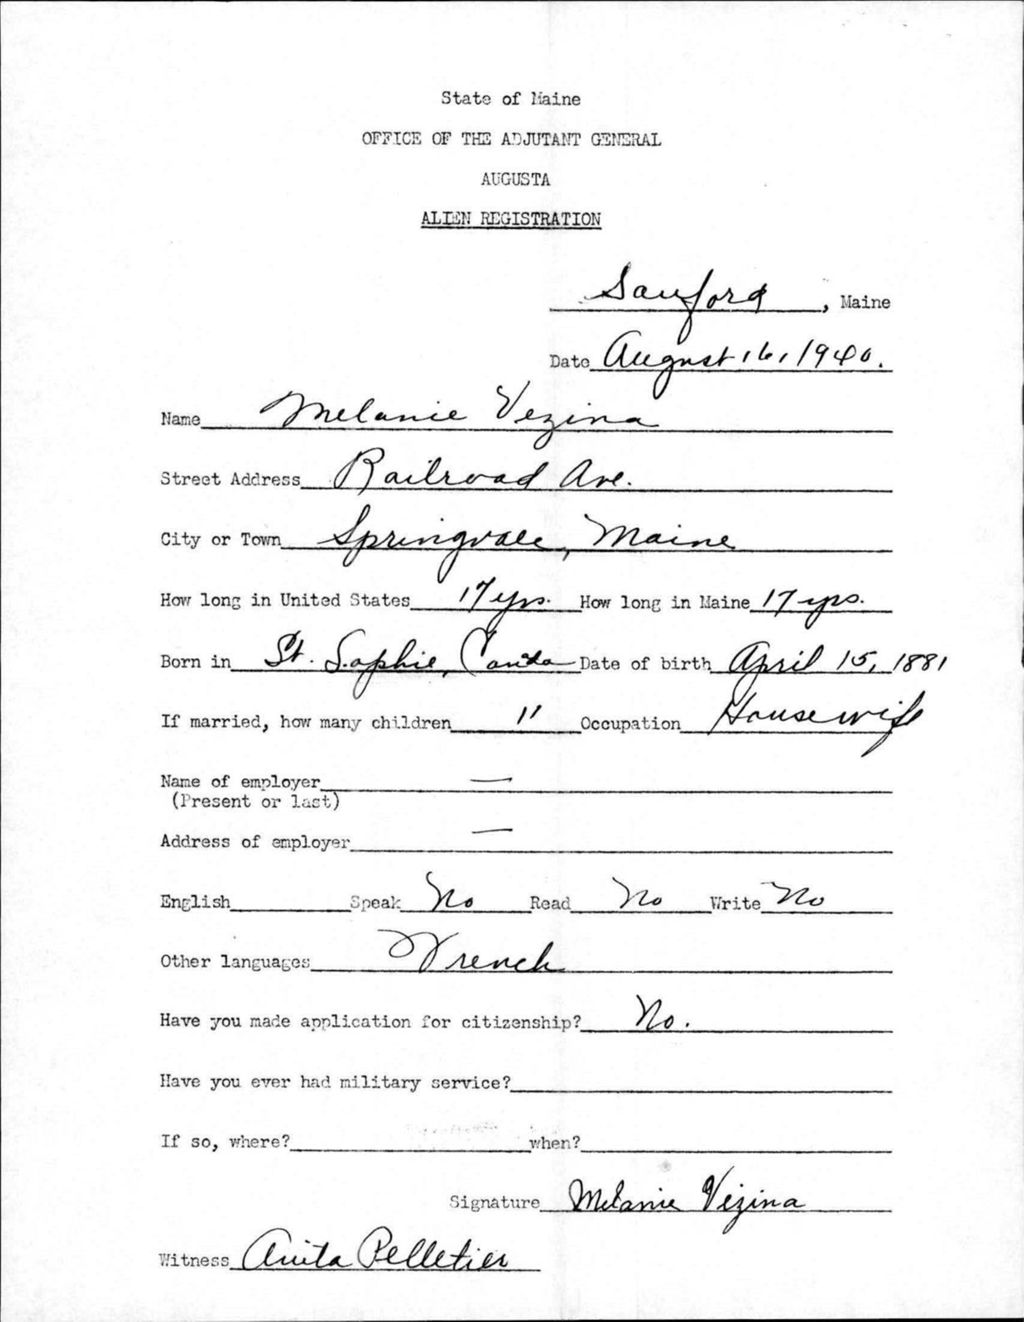 State of Maine
OFFICE OF THE ADJUTANT GENERAL
AUGUSTA
ALIEN REGISTRATION
Sanford, Maine
Date August 16, 1940.
Name Melanie Vezina
Street Address Railroad Ave.
City or Town Springvale, Maine
How long in United States 17 yrs. How long in Maine 17 yrs.
Born in St. Sophie, Canda Date of birth April 15, 1881
If married, how many children 11 Occupation Housewife
Name of employer —
(Present or last)
Address of employer —
English Speak No Read No Write No
Other languages French
Have you made application for citizenship? No.
Have you ever had military service?
If so, where? when?
Signature Melanie Vezina
Witness Anita Pelletier